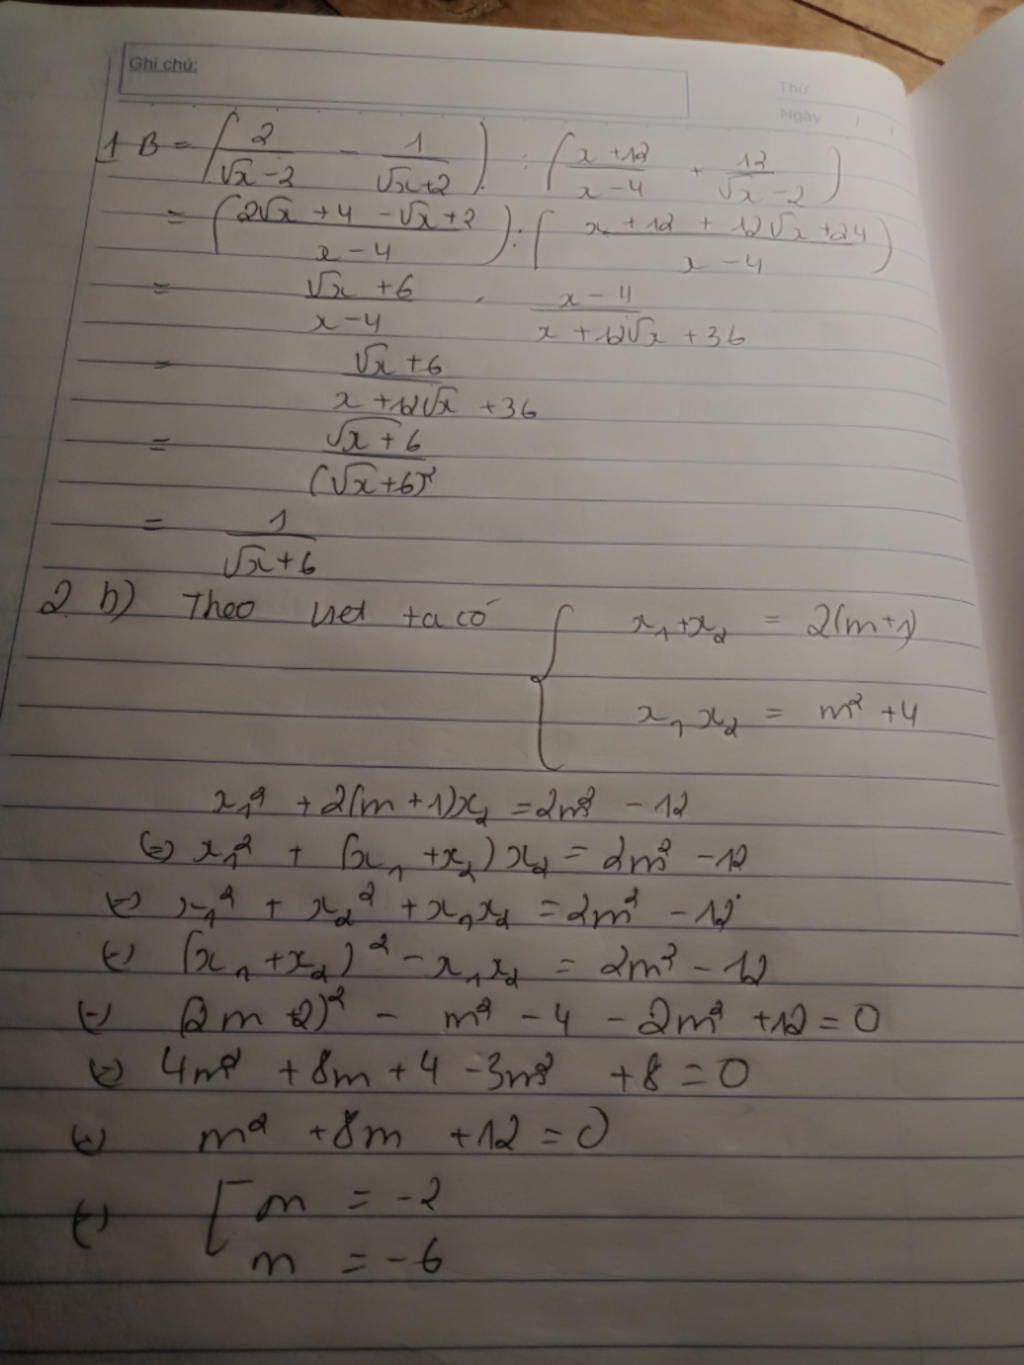 Ghi chú:
Thứ
Ngày / /
1 B = (2/(√x-2) - 1/(√x+2)) : ((x+12)/(x-4) + 12/(√x-2))
= ((2√x+4-√x+2)/(x-4)) : ((x+12+12√x+24)/(x-4))
= (√x+6)/(x-4) . (x-4)/(x+12√x+36)
= (√x+6)/(x+12√x+36)
= (√x+6)/(√x+6)²
= 1/(√x+6)
2 b) Theo viet ta có { x₁+x₂ = 2(m+1)
x₁x₂ = m²+4
x₁² + 2(m+1)x₂ = 2m² - 12
(=) x₁² + (x₁+x₂)x₂ = 2m² - 12
(=) x₁² + x₂² + x₁x₂ = 2m² - 12
(=) (x₁+x₂)² - x₁x₂ = 2m² - 12
(=) (2m+2)² - m² - 4 - 2m² + 12 = 0
(=) 4m² + 8m + 4 - 3m² + 8 = 0
(=) m² + 8m + 12 = 0
(=) [ m = -2
m = -6